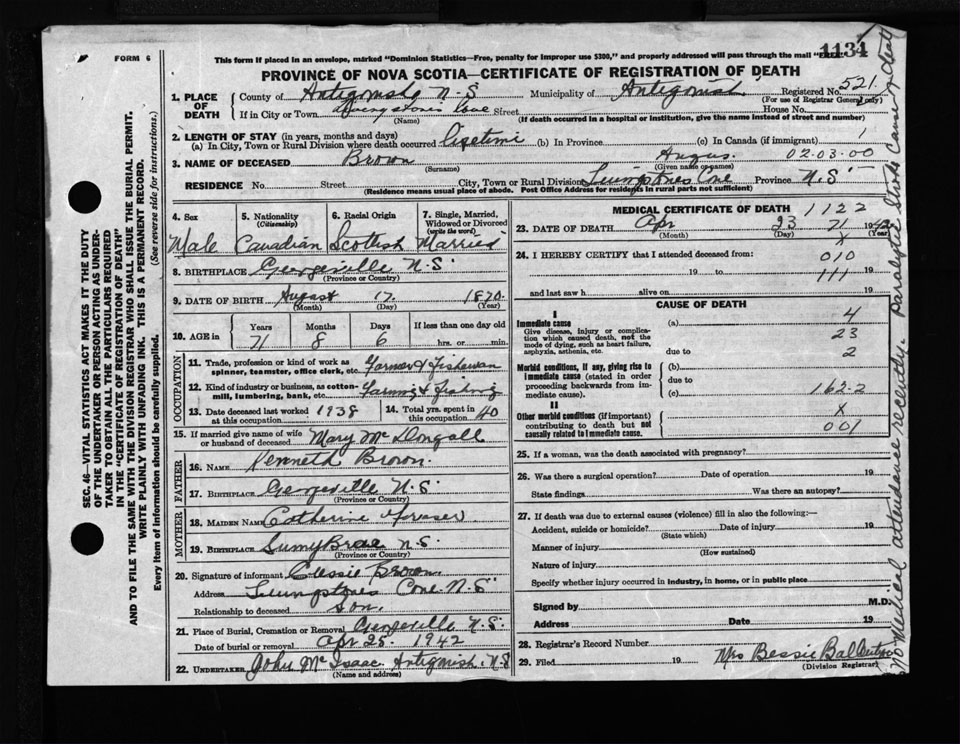 FORM 6
This form if placed in an envelope, marked "Dominion Statistics—Free, penalty for improper use $300," and properly addressed will pass through the mail "FREE"
1134
PROVINCE OF NOVA SCOTIA—CERTIFICATE OF REGISTRATION OF DEATH
1. PLACE OF DEATH { County of Antigonish N.S Municipality of Antigonish Registered No. 521
(For use of Registrar General only)
If in City or Town Livingstones Cove Street House No.
(Name) (If death occurred in a hospital or institution, give the name instead of street and number)
2. LENGTH OF STAY (in years, months and days)
(a) In City, Town or Rural Division where death occurred lifetime (b) In Province (c) In Canada (if immigrant) 1
3. NAME OF DECEASED Brown Angus. 02-03-00
(Surname) (Given name or names)
RESIDENCE No. Street City, Town or Rural Division Livingstones Cove Province N.S
(Residence means usual place of abode. Post Office Address for residents in rural parts not sufficient)
4. Sex 5. Nationality (Citizenship) 6. Racial Origin 7. Single, Married, Widowed or Divorced (write the word)
Male Canadian Scottish Married
8. BIRTHPLACE Georgeville N.S
(Province or Country)
9. DATE OF BIRTH August 17. 1870.
(Month) (Day) (Year)
10. AGE in Years Months Days If less than one day old
71 8 6 hrs. or min.
OCCUPATION
11. Trade, profession or kind of work as spinner, teamster, office clerk, etc. Farmer & Fisherman
12. Kind of industry or business, as cotton-mill, lumbering, bank, etc. Farming & Fishing
13. Date deceased last worked at this occupation 1938 14. Total yrs. spent in this occupation 40
15. If married give name of wife or husband of deceased Mary McDongall
FATHER
16. NAME Kenneth Brown.
17. BIRTHPLACE Georgeville N.S
(Province or Country)
MOTHER
18. MAIDEN NAME Catherine Fraser
19. BIRTHPLACE SunnyBrae N.S.
(Province or Country)
20. Signature of informant Brown
Address Livingstones Cove N.S
Relationship to deceased son.
21. Place of Burial, Cremation or Removal Georgeville N.S.
Date of burial or removal Apr 25. 1942
22. UNDERTAKER John McIsaac Antigonish, N.S
(Name and address)
MEDICAL CERTIFICATE OF DEATH 1122
23. DATE OF DEATH Apr 23 71 1942
(Month) (Day) (Year)
X
24. I HEREBY CERTIFY that I attended deceased from: 010
19 to 19
111
and last saw h alive on 19
CAUSE OF DEATH
I
Immediate cause (a) 4
Give disease, injury or complication which caused death, not the mode of dying, such as heart failure, asphyxia, asthenia, etc. 23
due to 2
Morbid conditions, if any, giving rise to immediate cause (stated in order proceeding backwards from immediate cause). (b)
due to
(c) 162-2
II
Other morbid conditions (if important) contributing to death but not causally related to immediate cause. X
001
25. If a woman, was the death associated with pregnancy?
26. Was there a surgical operation? Date of operation 19
State findings Was there an autopsy?
27. If death was due to external causes (violence) fill in also the following:—
Accident, suicide or homicide? Date of injury 19
(State which)
Manner of injury
(How sustained)
Nature of injury
Specify whether injury occurred in industry, in home, or in public place
Signed by M.D.
Address Date 19
28. Registrar's Record Number
29. Filed 19 Mrs Bessie
(Division Registrar)
No Medical attendance recently. Paralytic Stroke Cause of death
SEC. 46—VITAL STATISTICS ACT MAKES IT THE DUTY
OF THE UNDERTAKER OR PERSON ACTING AS UNDER-
TAKER TO OBTAIN ALL THE PARTICULARS REQUIRED
IN THE "CERTIFICATE OF REGISTRATION OF DEATH"
AND TO FILE THE SAME WITH THE DIVISION REGISTRAR WHO SHALL ISSUE THE BURIAL PERMIT.
WRITE PLAINLY WITH UNFADING INK. THIS IS A PERMANENT RECORD.
Every item of Information should be carefully supplied. (See reverse side for instructions.)